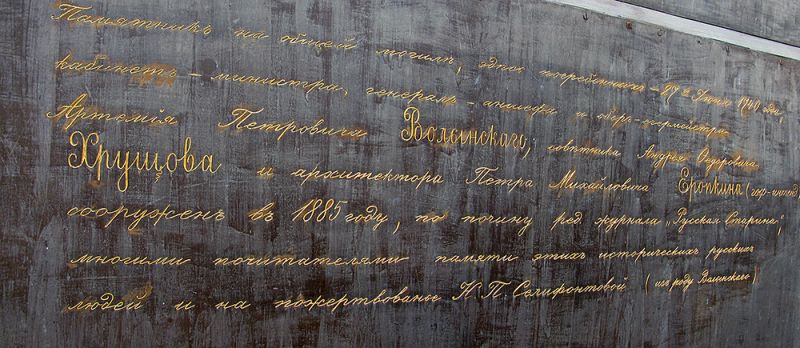 Памятникъ на общей могилѣ, здѣсь погребенныхъ – 27 Іюня 1740 года,
кабинетъ – министра, генералъ – аншефа и оберъ-егермейстера
Артемія Петровича Волынскаго, совѣтника Андрея Ѳедоровича
Хрущова и архитектора Петра Михайловича Еропкина (гоф-интенд
сооруженъ въ 1885 году, по почину ред. журнала „Русская Старина",
многими почитателями памяти этихъ историческихъ русскихъ
людей и на пожертвованіе Н. П. Селифонтовой (изъ роду Волынскаго)